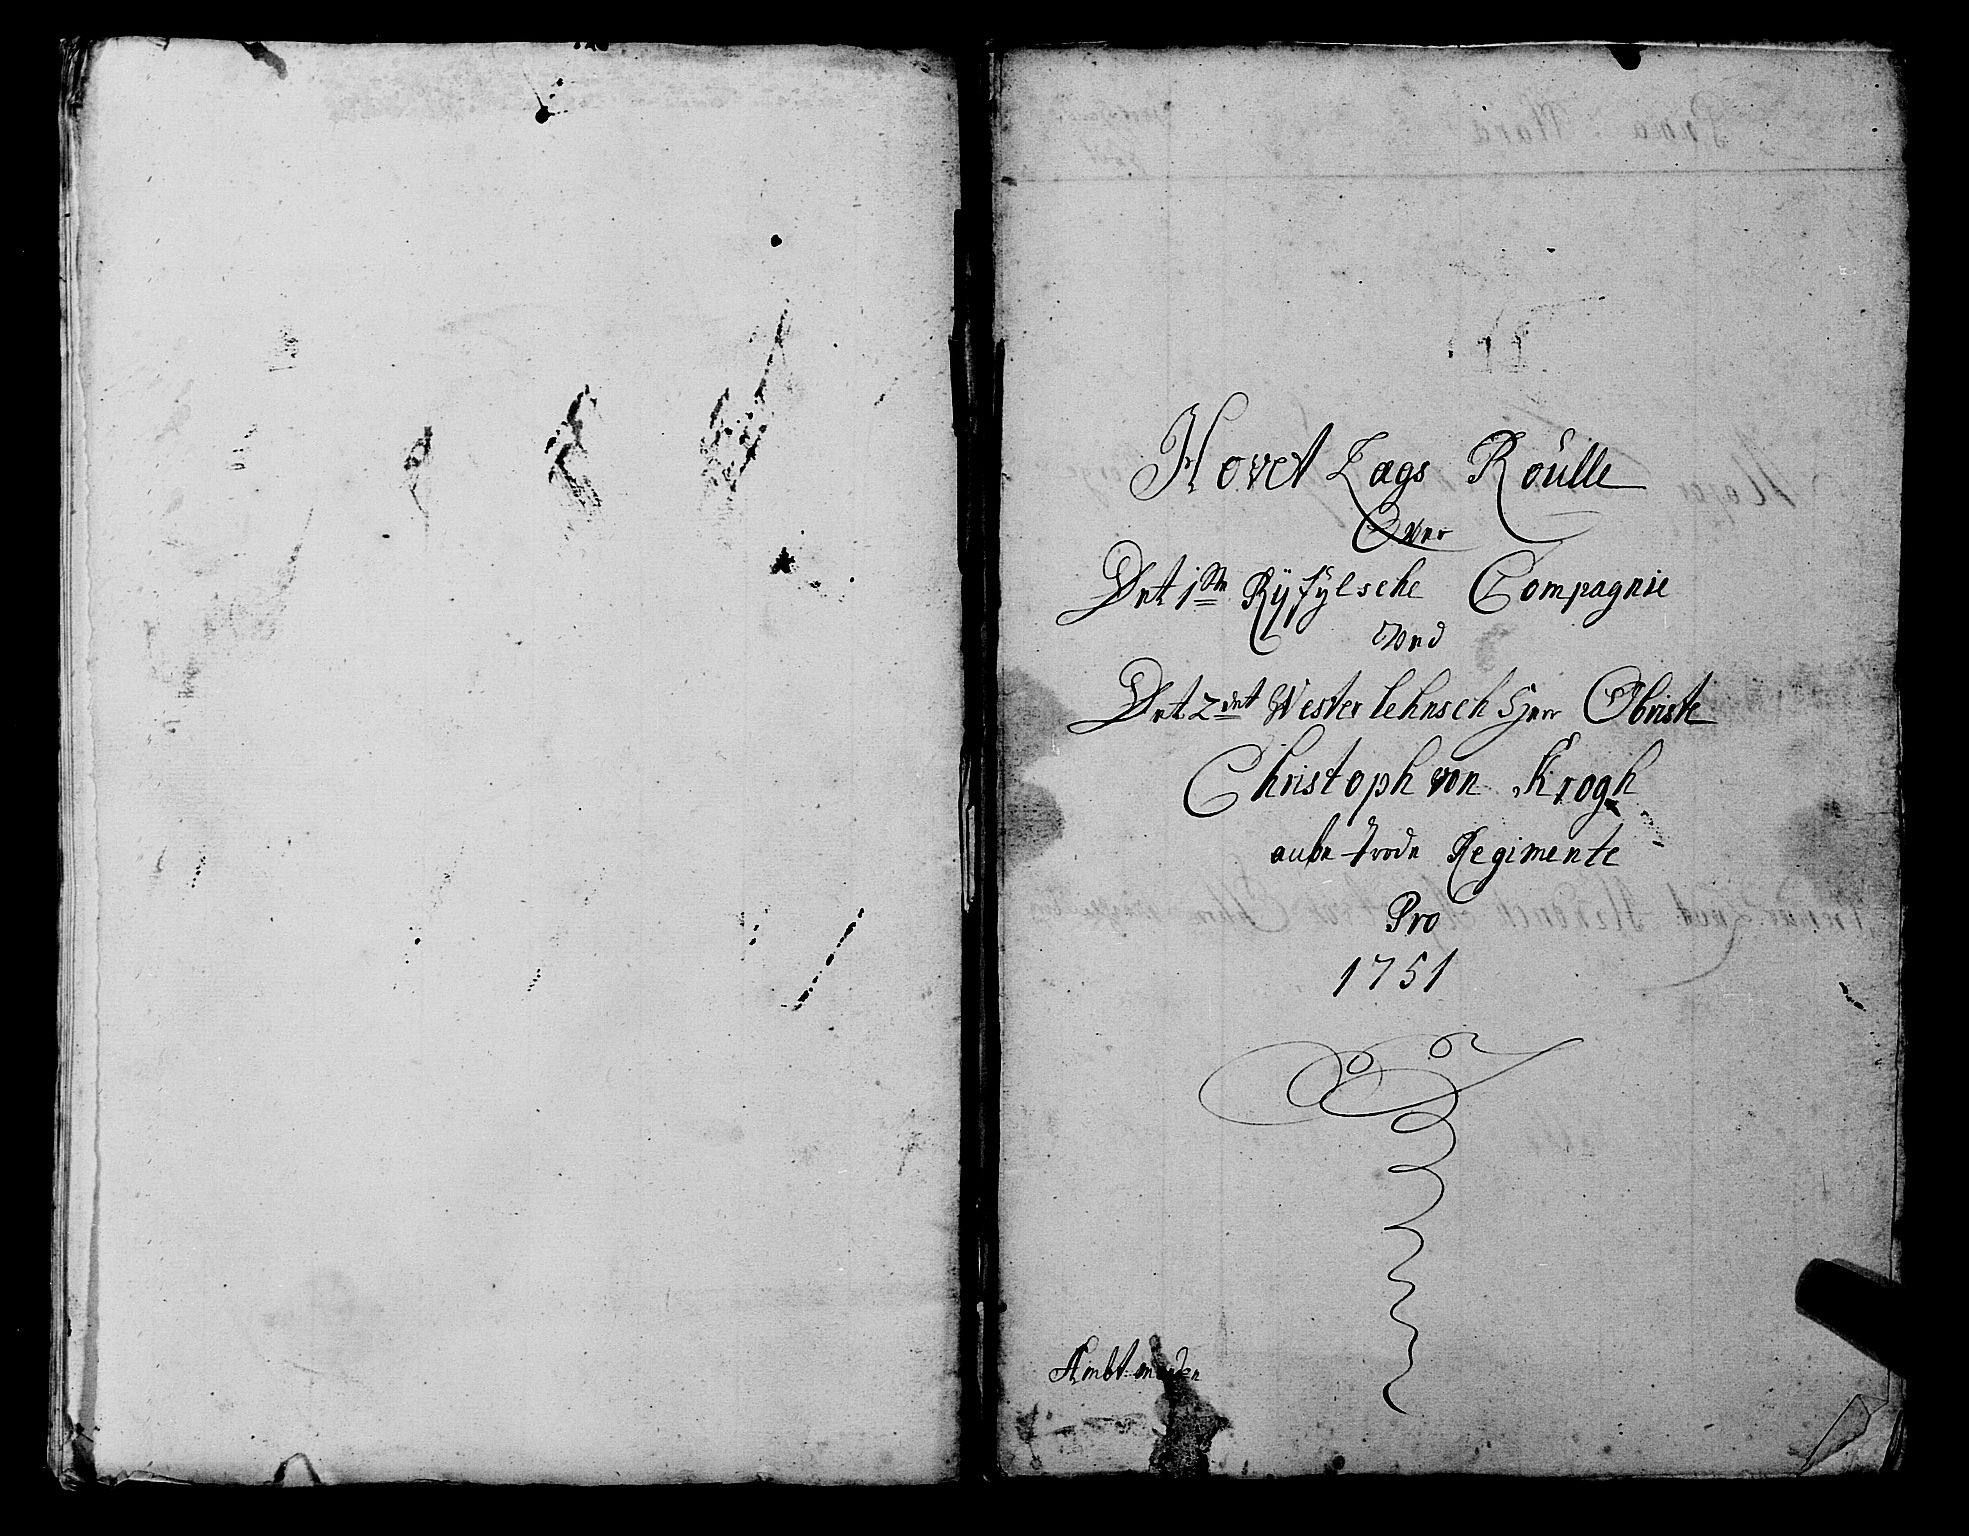 Hovet Lags Roulle
Over
Det 1ste Ryfylsche Compagnie
Ved
Det 2det Westerlehnsch Herr Obriste
Christoph von Krogh
anbetrode Regimente
Pro
1751
Ambtmanden